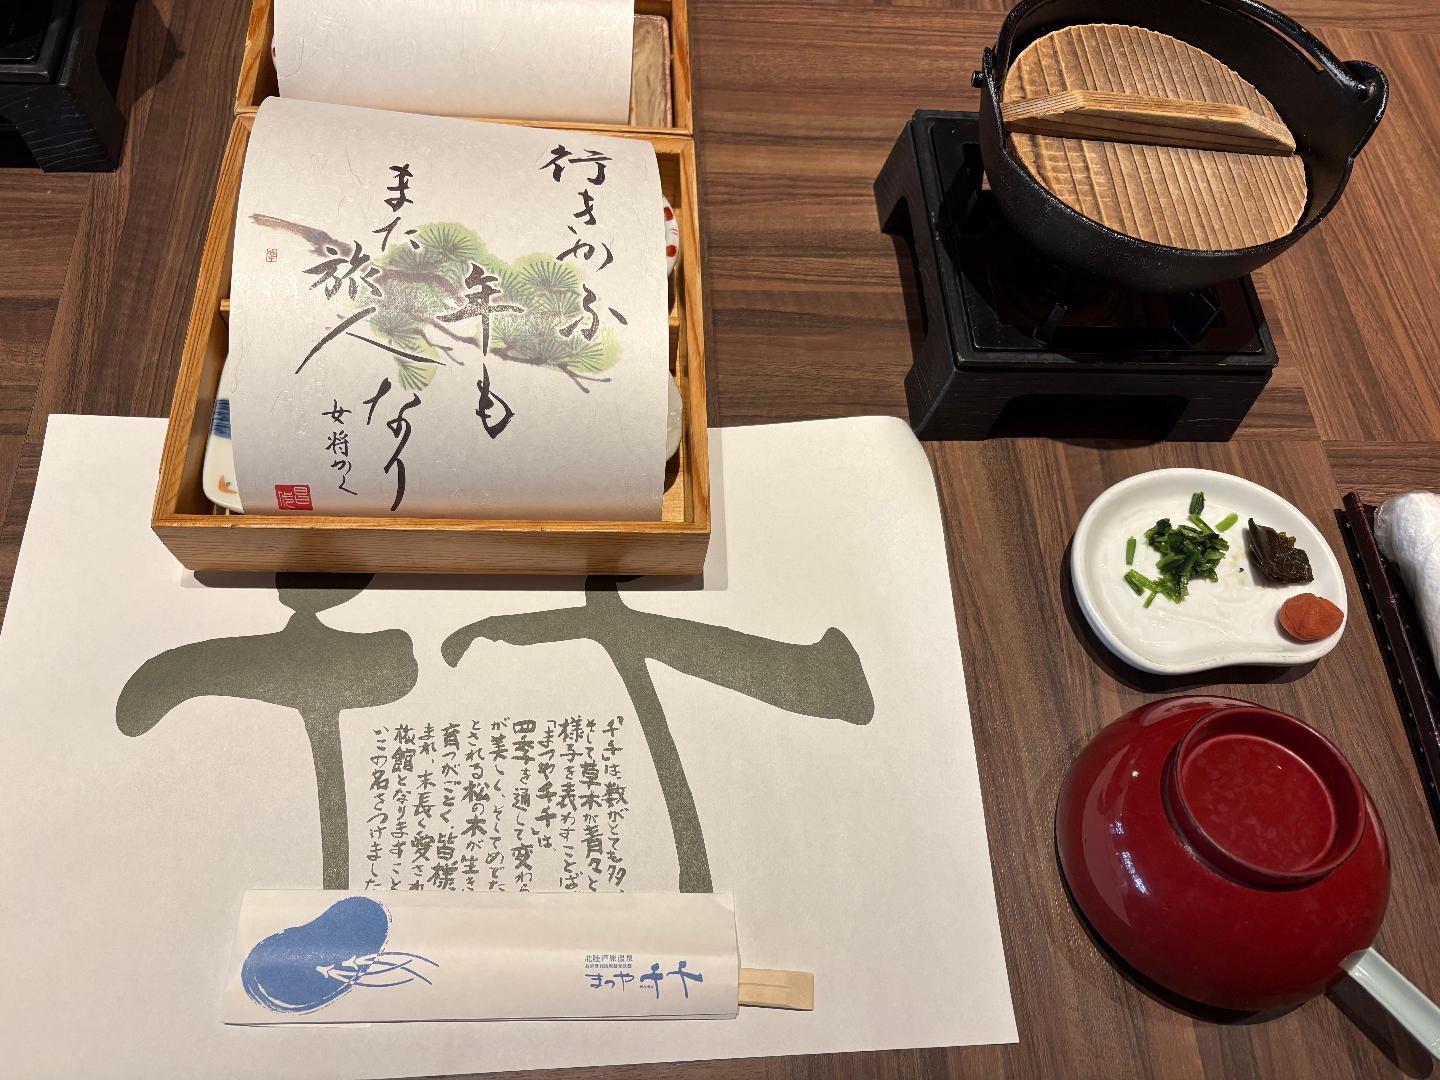 行きかふ
年も
また
旅人
なり
女将かく
千千
「千千」は、数がとても多、
そして草木が青々と
様子を表わすことば
「まつや千千」は、
四季を通して変わら
が美しく、そしてめでた
とされる松の木が生き
育つがごとく、皆様
まれ、末長く愛され
旅館となりますこと
いこの名をつけました
北陸芦原温泉
まつや千千